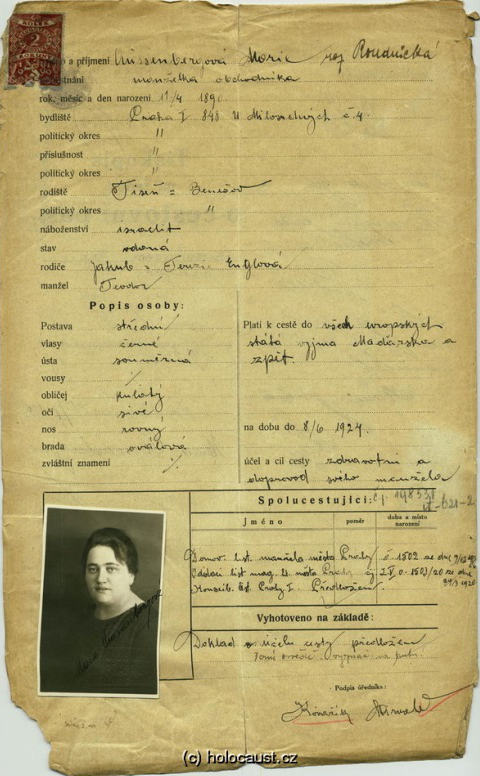 KOLEK
a příjmení Aussenbergová Marie roz Roudnická
stnání manželka obchodníka
rok, měsíc a den narození 11/4 1890.
bydliště Praha I 848 U Milosrdných č. 4.
politický okres "
příslušnost "
politický okres "
rodiště Tisem = Benešov
politický okres "
náboženství israelit
stav vdaná
rodiče Jakub = Terezie Englová
manžel Teodor
Popis osoby:
Postava střední
vlasy černé
ústa souměrná
vousy ./.
obličej kulatý
oči sivé
nos rovný
brada oválová
zvláštní znamení ./.
Platí k cestě do všech evropských
států vyjma Maďarska a
zpět.
na dobu do 8/6 1924.
účel a cíl cesty zdravotní a
doprovod svého manžela
Spolucestující:
Jméno poměr doba a místo narození
Domov. list manžela města Prahy č. 1502 ze dne
Oddací list mag. hl. města Prahy čj 1503/20 ze dne
Konskib. Prahy I. Předložen.
Vyhotoveno na základě:
Doklad o účelu cesty předložen
Podpis úředníka:
(c) holocaust.cz